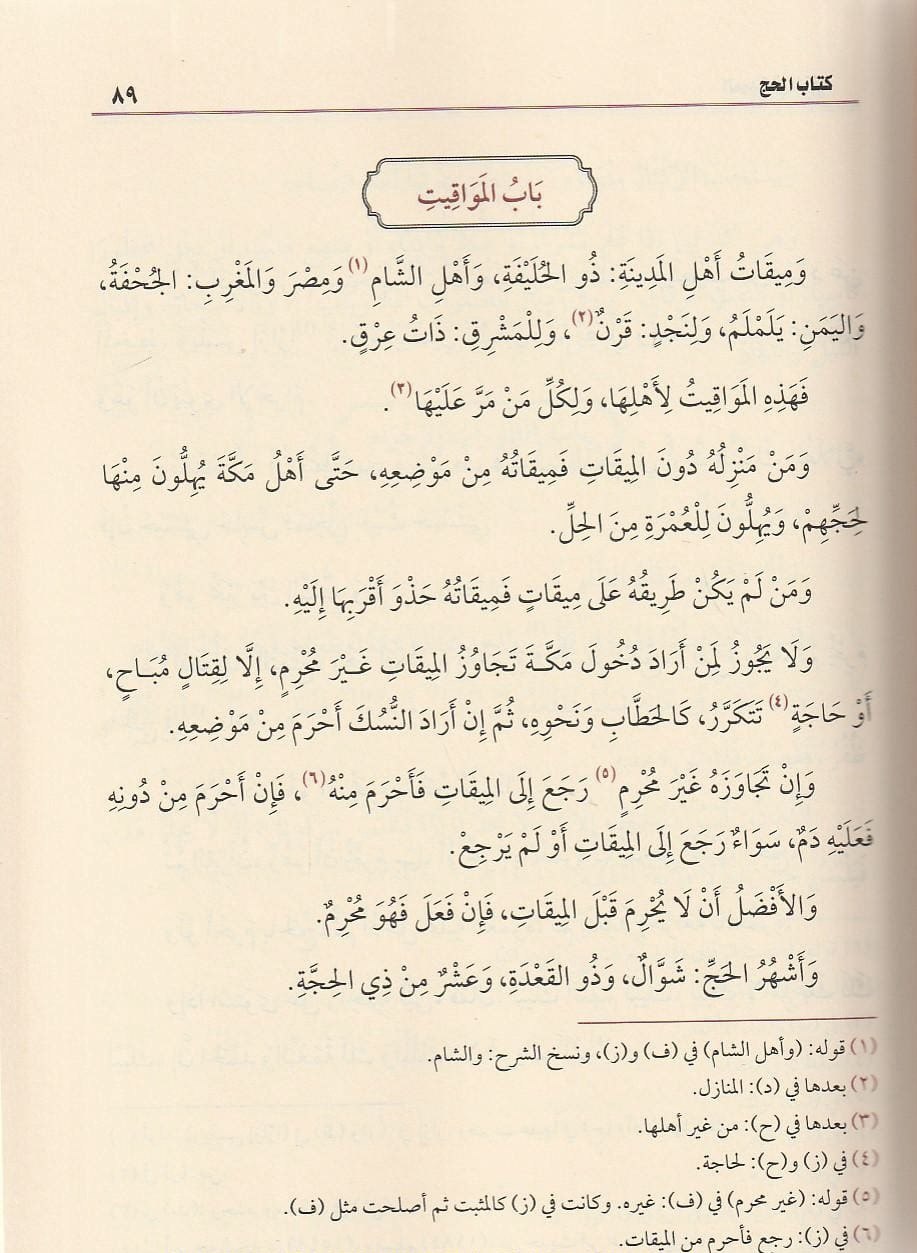 كتاب الحج
٨٩
بَابُ المَوَاقِيتِ
وَمِيقَاتُ أَهْلِ المَدِينَةِ: ذُو الحُلَيْفَةِ، وَأَهْلِ الشَّامِ(١) وَمِصْرَ وَالمَغْرِبِ: الجُحْفَةُ،
وَاليَمَنِ: يَلَمْلَمُ، وَلِنَجْدٍ: قَرْنٌ(٢)، وَلِلْمَشْرِقِ: ذَاتُ عِرْقٍ.
فَهَذِهِ المَوَاقِيتُ لِأَهْلِهَا، وَلِكُلِّ مَنْ مَرَّ عَلَيْهَا(٣).
وَمَنْ مَنْزِلُهُ دُونَ المِيقَاتِ فَمِيقَاتُهُ مِنْ مَوْضِعِهِ، حَتَّى أَهْلُ مَكَّةَ يُهِلُّونَ مِنْهَا
لِحَجِّهِمْ، وَيُهِلُّونَ لِلْعُمْرَةِ مِنَ الحِلِّ.
وَمَنْ لَمْ يَكُنْ طَرِيقُهُ عَلَى مِيقَاتٍ فَمِيقَاتُهُ حَذْوَ أَقْرَبِهَا إِلَيْهِ.
وَلَا يَجُوزُ لِمَنْ أَرَادَ دُخُولَ مَكَّةَ تَجَاوُزُ المِيقَاتِ غَيْرَ مُحْرِمٍ، إِلَّا لِقِتَالٍ مُبَاحٍ،
أَوْ حَاجَةٍ(٤) تَتَكَرَّرُ، كَالحَطَّابِ وَنَحْوِهِ، ثُمَّ إِنْ أَرَادَ النُّسُكَ أَحْرَمَ مِنْ مَوْضِعِهِ.
وَإِنْ تَجَاوَزَهُ غَيْرَ مُحْرِمٍ(٥) رَجَعَ إِلَى المِيقَاتِ فَأَحْرَمَ مِنْهُ(٦)، فَإِنْ أَحْرَمَ مِنْ دُونِهِ
فَعَلَيْهِ دَمٌ، سَوَاءٌ رَجَعَ إِلَى المِيقَاتِ أَوْ لَمْ يَرْجِعْ.
وَالأَفْضَلُ أَنْ لَا يُحْرِمَ قَبْلَ المِيقَاتِ، فَإِنْ فَعَلَ فَهُوَ مُحْرِمٌ.
وَأَشْهُرُ الحَجِّ: شَوَّالٌ، وَذُو القَعْدَةِ، وَعَشْرٌ مِنْ ذِي الحِجَّةِ.
(١) قوله: (وأهل الشام) في (ف) و(ز)، ونسخ الشرح: والشام.
(٢) بعدها في (د): المنازل.
(٣) بعدها في (ح): من غير أهلها.
(٤) في (ز) و(ح): لحاجة.
(٥) قوله: (غير محرم) في (ف): غيره. وكانت في (ز) كالمثبت ثم أصلحت مثل (ف).
(٦) في (ز): رجع فأحرم من الميقات.